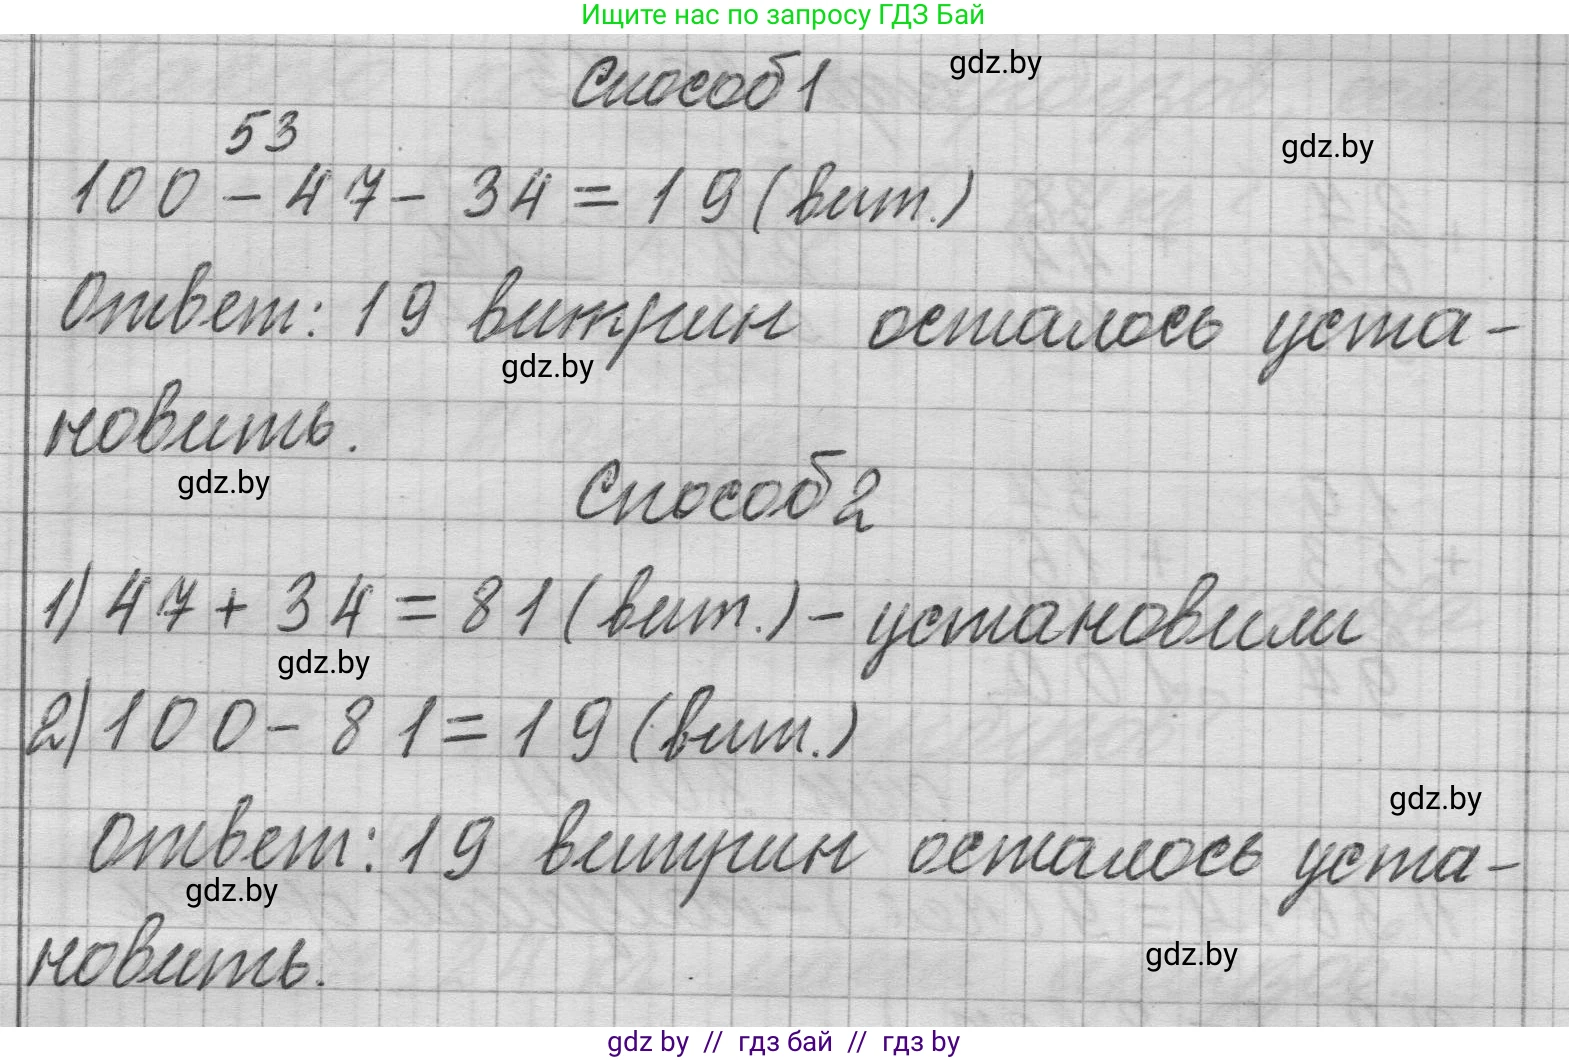 Ищите нас по запросу ГДЗ Бай
Способ 1
gdz.by
53
gdz.by
100 - 47 - 34 = 19 (вит.)
Ответ: 19 витрин осталось уста-
gdz.by
новить.
gdz.by
Способ 2
1) 47 + 34 = 81 (вит.) - установили
gdz.by
2) 100 - 81 = 19 (вит.)
gdz.by
Ответ: 19 витрин осталось уста-
gdz.by
новить.
gdz.by
gdz.by // гдз бай // гдз by